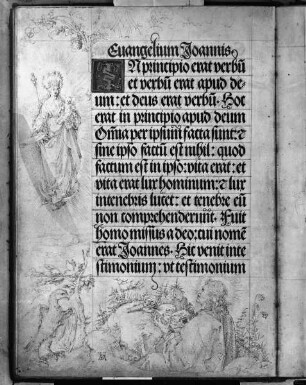 Euangelium Joannis.
IN principio erat verbū
et verbū erat apud de-
um: et deus erat verbū. Hoc
erat in principio apud deum
Omīa per ipsum facta sunt: ⁊
sine ipso factū est nihil: quod
factum est in ipso: vita erat: et
vita erat lux hominum: ⁊ lux
in tenebris lucet: et tenebre eū
non comprehenderunt. Fuit
homo missus a deo: cui nomē
erat Joannes. Hic venit in te
stimonium: vt testimonium